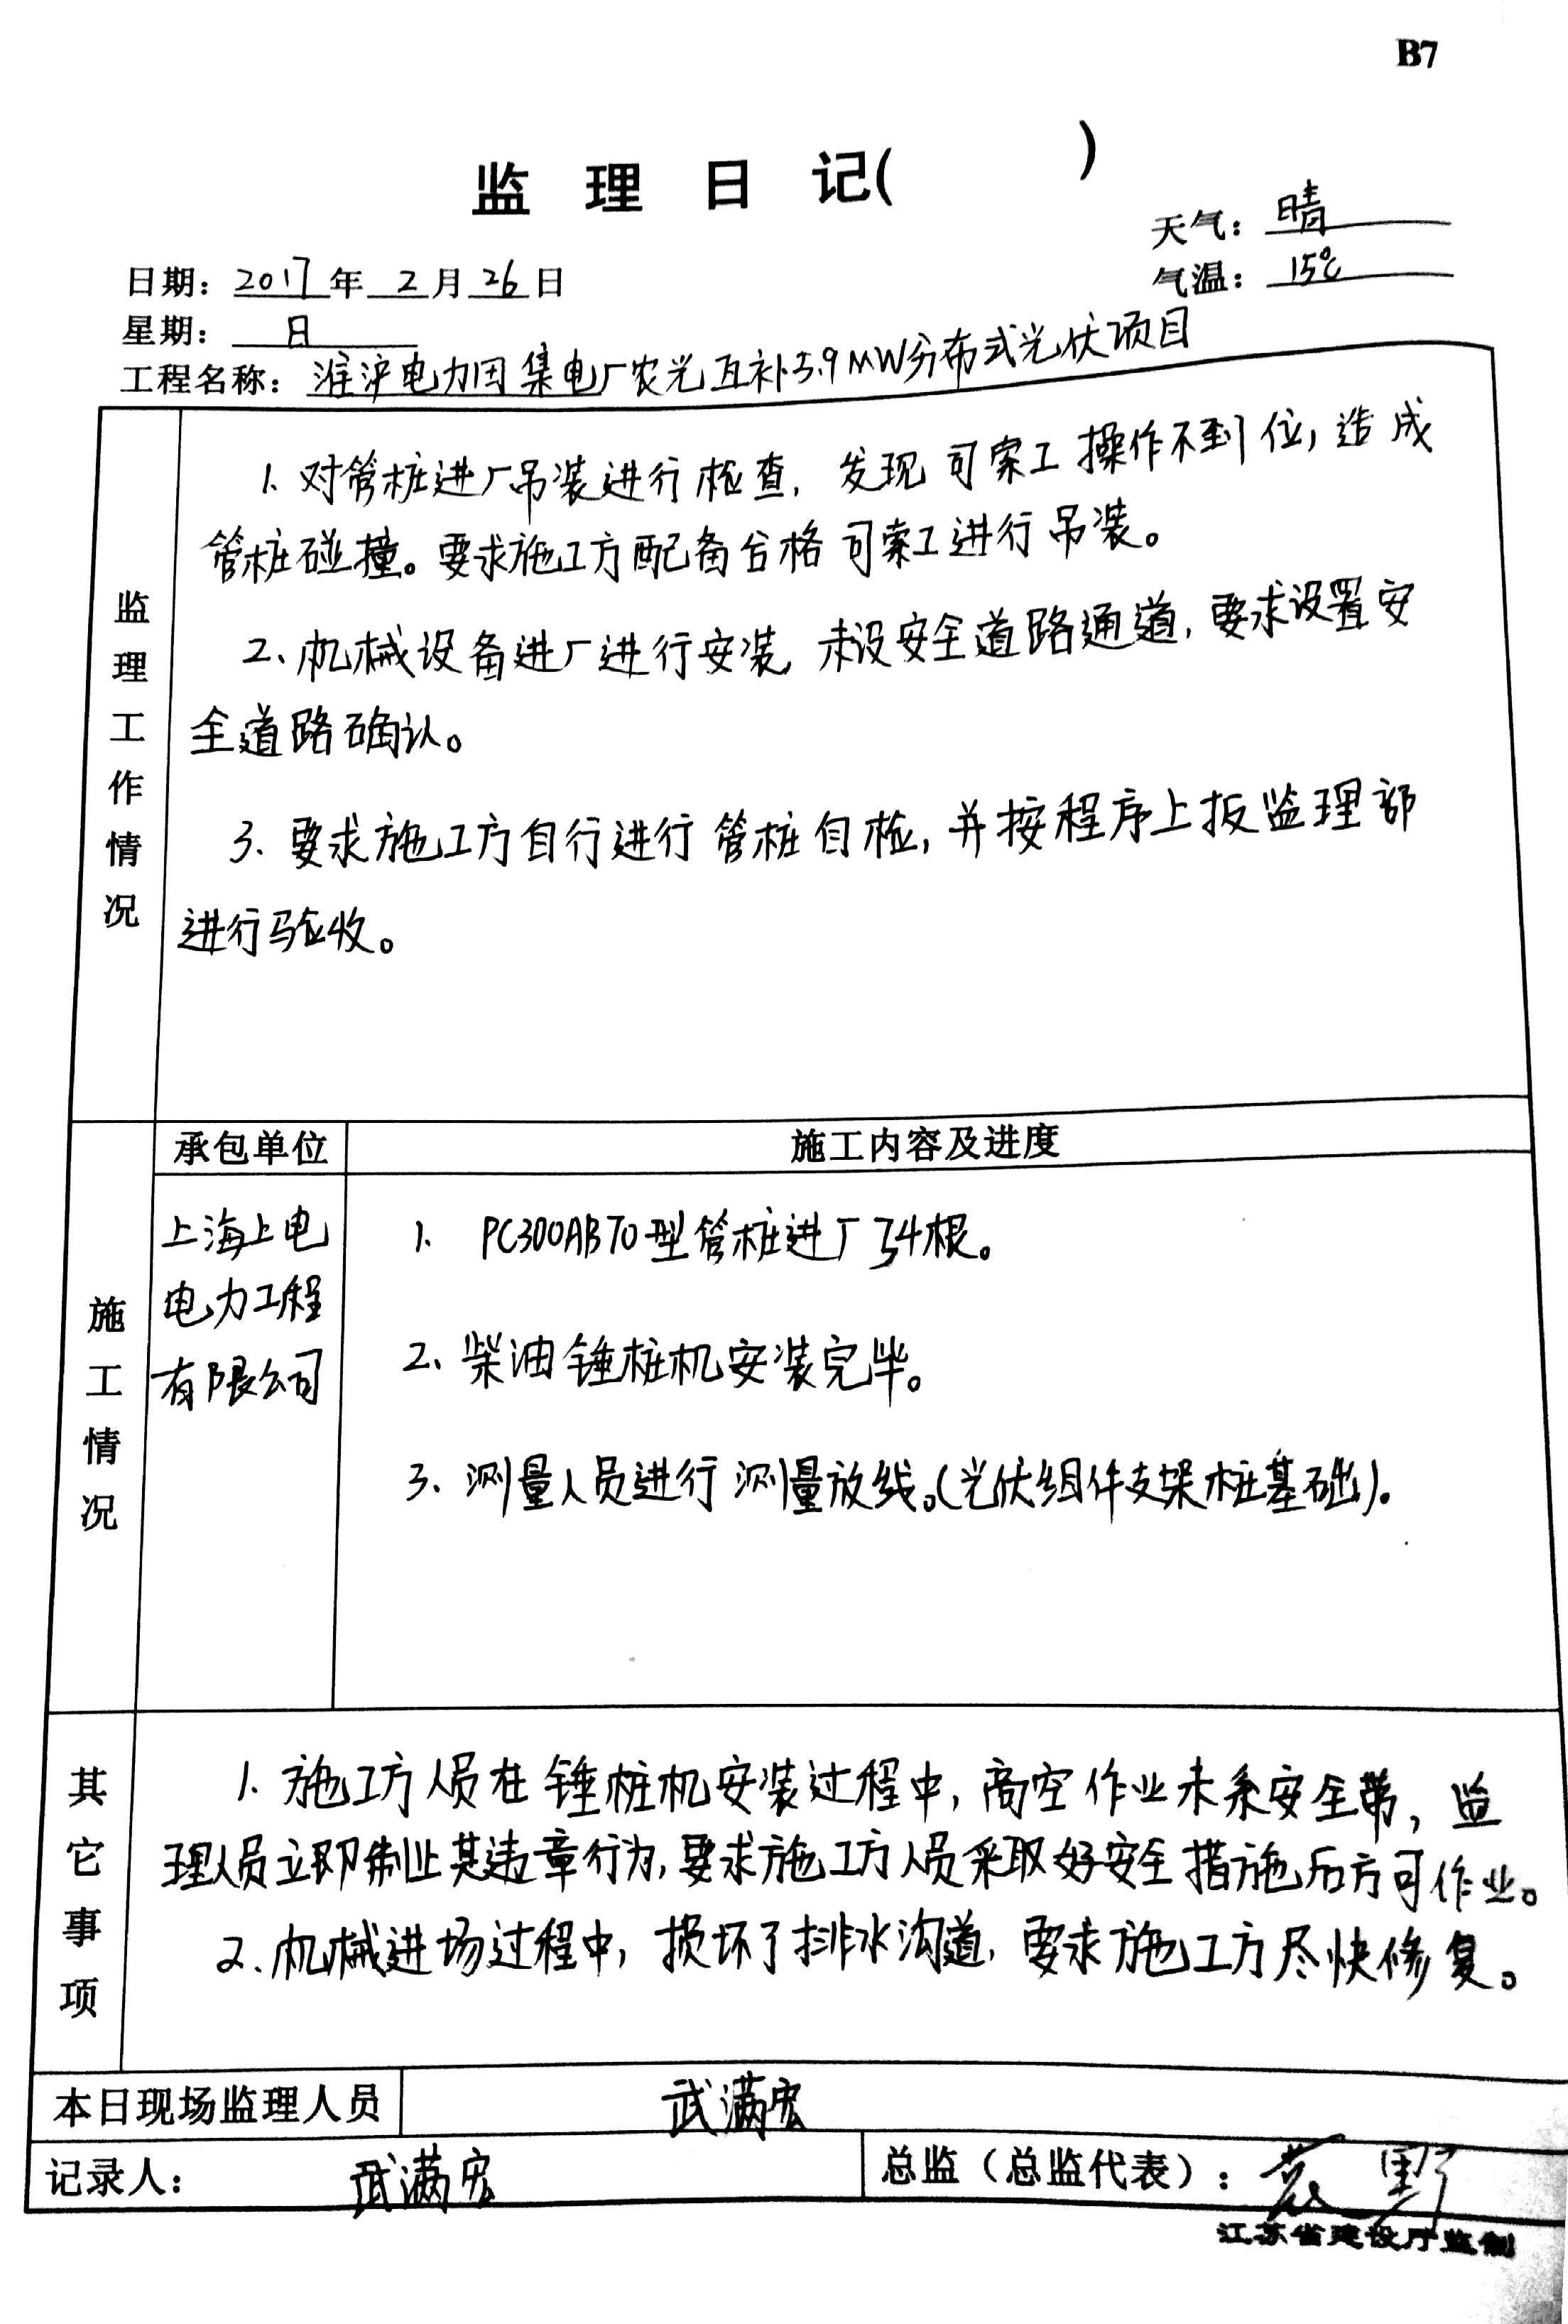 B7
监理日记( )
天气：晴
日期：2017年2月26日
气温：15℃
星期：日
工程名称：淮沪电力田集电厂农光互补5.9MW分布式光伏项目
监理工作情况
1.对管桩进厂吊装进行检查，发现司索工操作不到位，造成
管桩碰撞。要求施工方配备合格司索工进行吊装。
2、机械设备进厂进行安装 未设安全道路通道，要求设置安
全道路确认。
3、要求施工方自行进行管桩自检，并按程序上报监理部
进行验收。
施工情况
承包单位 施工内容及进度
上海上电
电力工程
有限公司
1. PC300AB70型管桩进厂34根。
2、柴油锤桩机安装完毕。
3、测量人员进行测量放线。(光伏组件支架桩基础).
其它事项
1.施工方人员在锤桩机安装过程中，高空作业未系安全带，监
理人员立即制止其违章行为，要求施工方人员采取好安全措施后方可作业。
2、机械进场过程中，损坏了排水沟道，要求施工方尽快修复。
本日现场监理人员 武满宏
记录人： 武满宏 总监（总监代表）：
江苏省建设厅监制